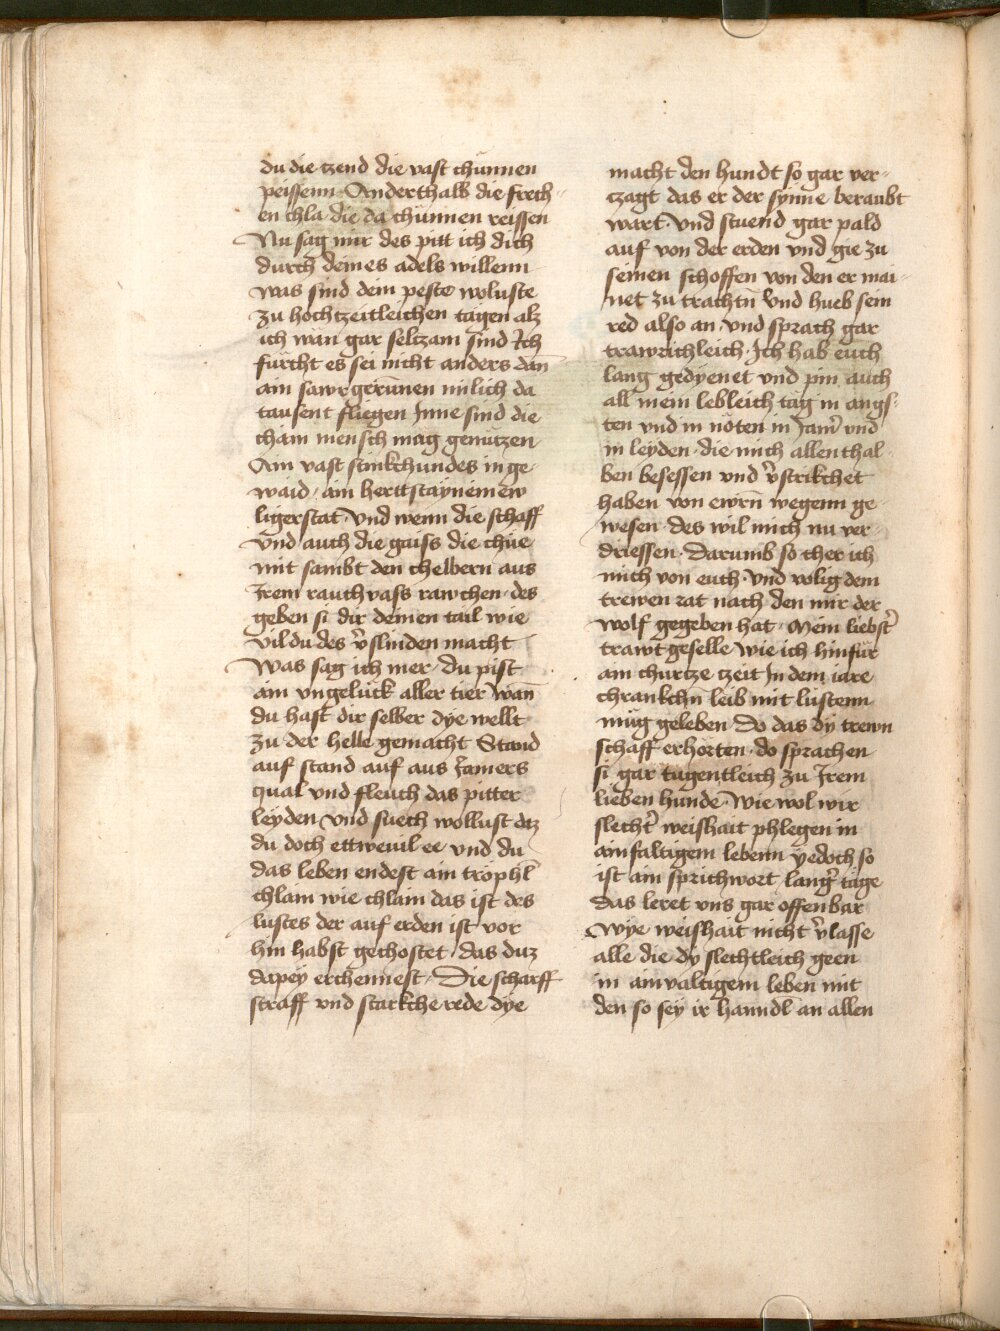 du die zend die vast chünnen
peissenn · Anderthalb die frech-
en chla die da chünnen reissen
Nu sag mir des pitt ich dich
durch deines adels willenn
was sind dem peste woluste
zu hochtzeitleichen tagen alz
ich wän gar seltzam sind Ich
fürcht es sei nicht anders dan̄
ain sawrgerunen milich da
tausent fliegen Inne sind die
cham mensch mag genützen
Ain vast stinkchundes inge
waid · ain herttstaynemew
ligerstat · Vnd wenn die schaff
Vnd auch die gaiss die chüe
mit sambt den chelbern aus
Irem rauchvass rawchen · des
geben si dir deinen tail wie
vil du des v̉slinden macht
Was sag ich mer · du pist
ain vngelück aller tier wan̄
du hast dir selber dye wellt
zu der helle gemacht Stand
auf stand auf aus Jamers
qual vnd fleuch das pitter
leyden vnd suech wollust daz
du doch ettweuil ee vnd du
das leben endest ain tröphl
chlain wie chlain das ist des
lustes der auf erden ist vor
hin habst gechostet · das duz
dapey erchennest · Die scharff
straff vnd starkche rede dye
macht den hundt so gar ver-
czagt das er der synne beraubt
wart · vnd stuend gar pald
auf von der erden vnd gie zu
seinen schoffen von den er mai-
net zu trachtn̄ Vnd hueb sein
red also an · vnd sprach gar
trawrichleich · Ich hab euch
lang gedyenet vnd pin auch
all mein lebleich tag in angs-
ten vnd in nöten in Jam̉ vnd
in leyden · die mich allenthal-
ben besessen vnd v̉strikchet
haben von ewrn̄ wegenn ge
wesen · des wil mich nu ver-
driessen · Darumb so cher ich
mich von euch · Vnd volig dem
trewen rat nach den mir der
wolf gegeben hat · Mein liebst̉
trawt geselle wie ich hinfür
ain churtze zeit In dem iare
chrankchn̄ leib mit lustenn
müg geleben · Do das dy trewn
schaff erhorten · do sprachen
si gar tugentleich zu Irem
lieben hunde · Wie wol wir
slecht̉ weishait phlegen in
ainfaltigem lebenn yedoch so
ist ain sprichwort lang̉ tage
das leret vns gar offenbar
Wye weishait nicht v̉lasse
alle die dy slechtleich geen
in ainvaltigem leben mit
den so sey ir hanndl an allen